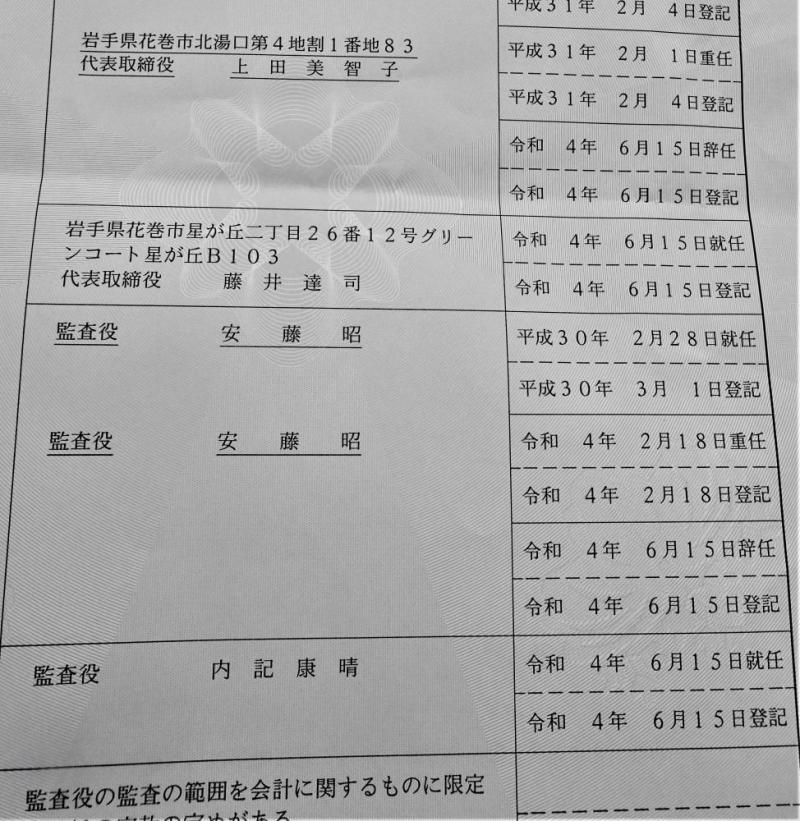 平成３１年　２月　４日登記
岩手県花巻市北湯口第４地割１番地８３
代表取締役　上　田　美　智　子
平成３１年　２月　１日重任
平成３１年　２月　４日登記
令和　４年　６月１５日辞任
令和　４年　６月１５日登記
岩手県花巻市星が丘二丁目２６番１２号グリー
ンコート星が丘Ｂ１０３
代表取締役　藤　井　達　司
令和　４年　６月１５日就任
令和　４年　６月１５日登記
監査役　安　藤　昭
平成３０年　２月２８日就任
平成３０年　３月　１日登記
監査役　安　藤　昭
令和　４年　２月１８日重任
令和　４年　２月１８日登記
令和　４年　６月１５日辞任
令和　４年　６月１５日登記
監査役　内　記　康　晴
令和　４年　６月１５日就任
令和　４年　６月１５日登記
監査役の監査の範囲を会計に関するものに限定
定めがある